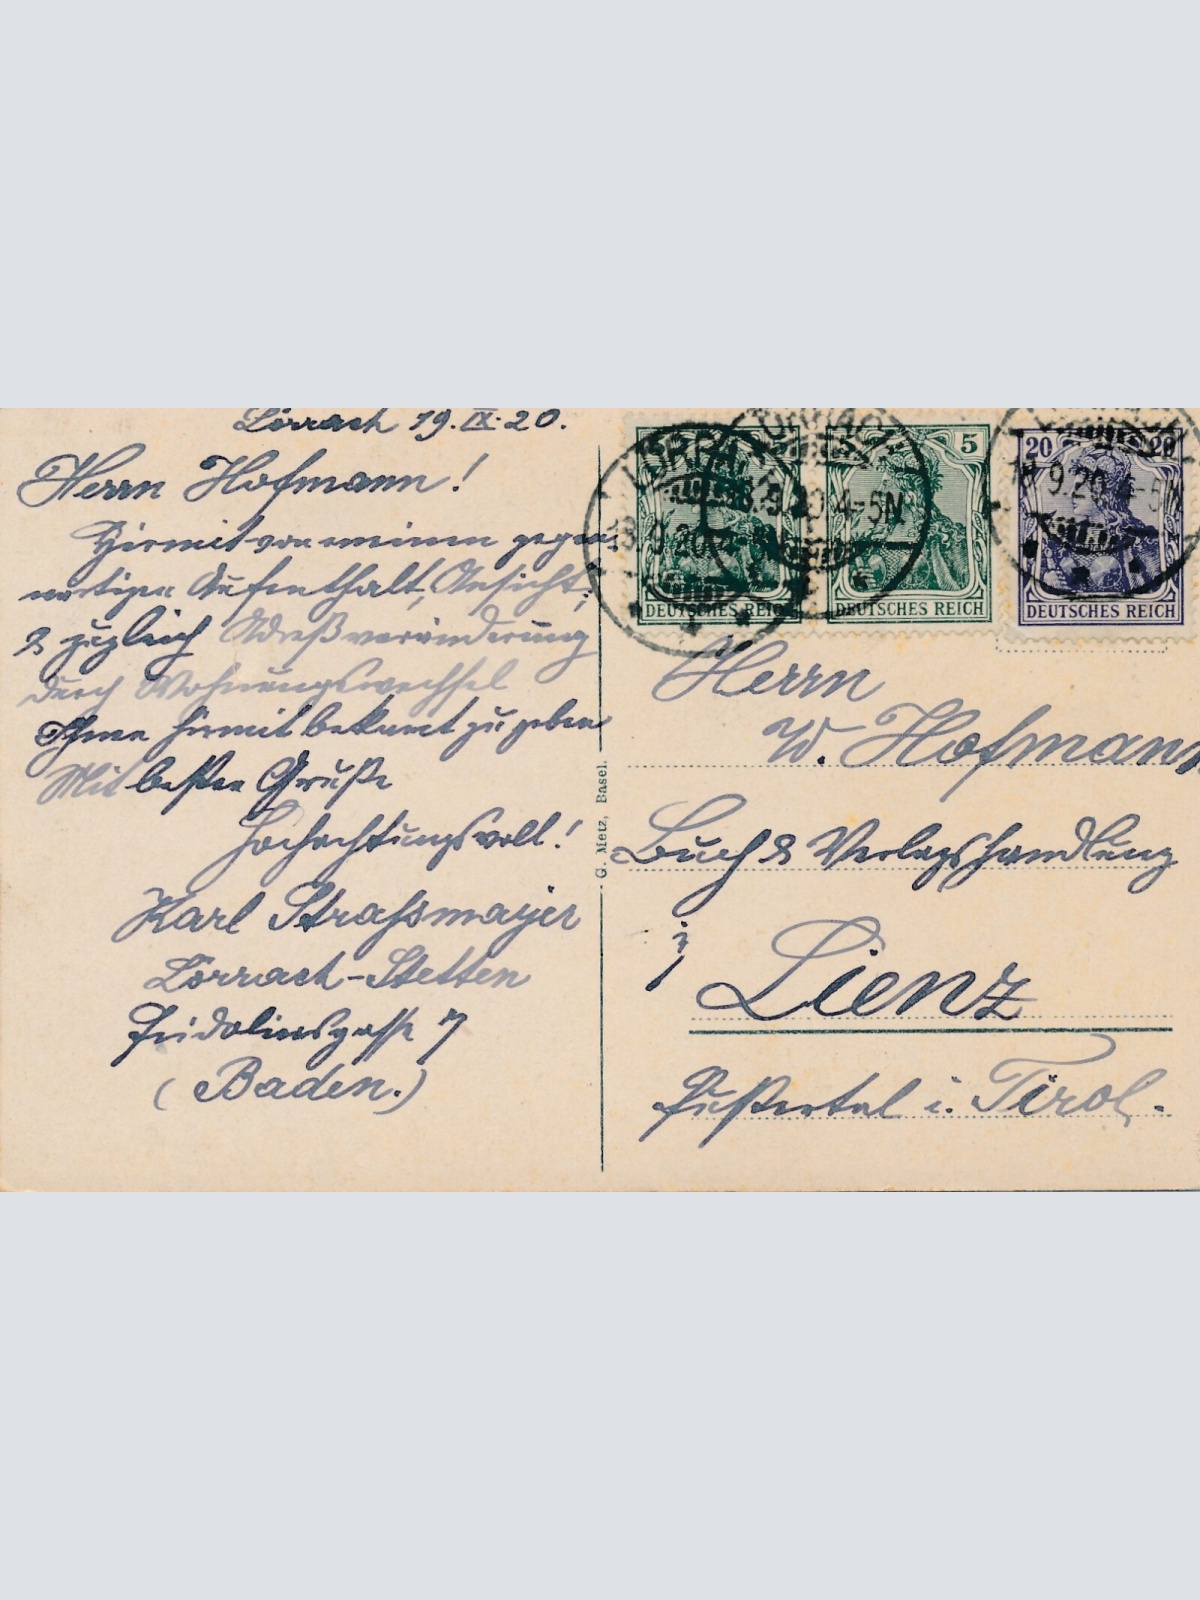 Lörrach 19. IX. 20.
Herrn Hofmann!
Hiermit von meinem gegen-
wertigen Aufenthalt, Ansicht,
& zugleich Adreßveränderung
durch Wohnungswechsel
Ihnen hirmit bekannt zu geben
Mit besten Gruße
Hochachtungsvoll!
Karl Strassmayer
Lörrach-Stetten
Fridolinsgasse 7
(Baden.)
G. Metz, Basel.
LÖRRACH
9.20. 4-5N
5
DEUTSCHES REICH
DEUTSCHES REICH
20 20
DEUTSCHES REICH
Herrn
W. Hofmann
Buch & Verlagshandlung
in
Lienz
Pustertal i. Tirol.